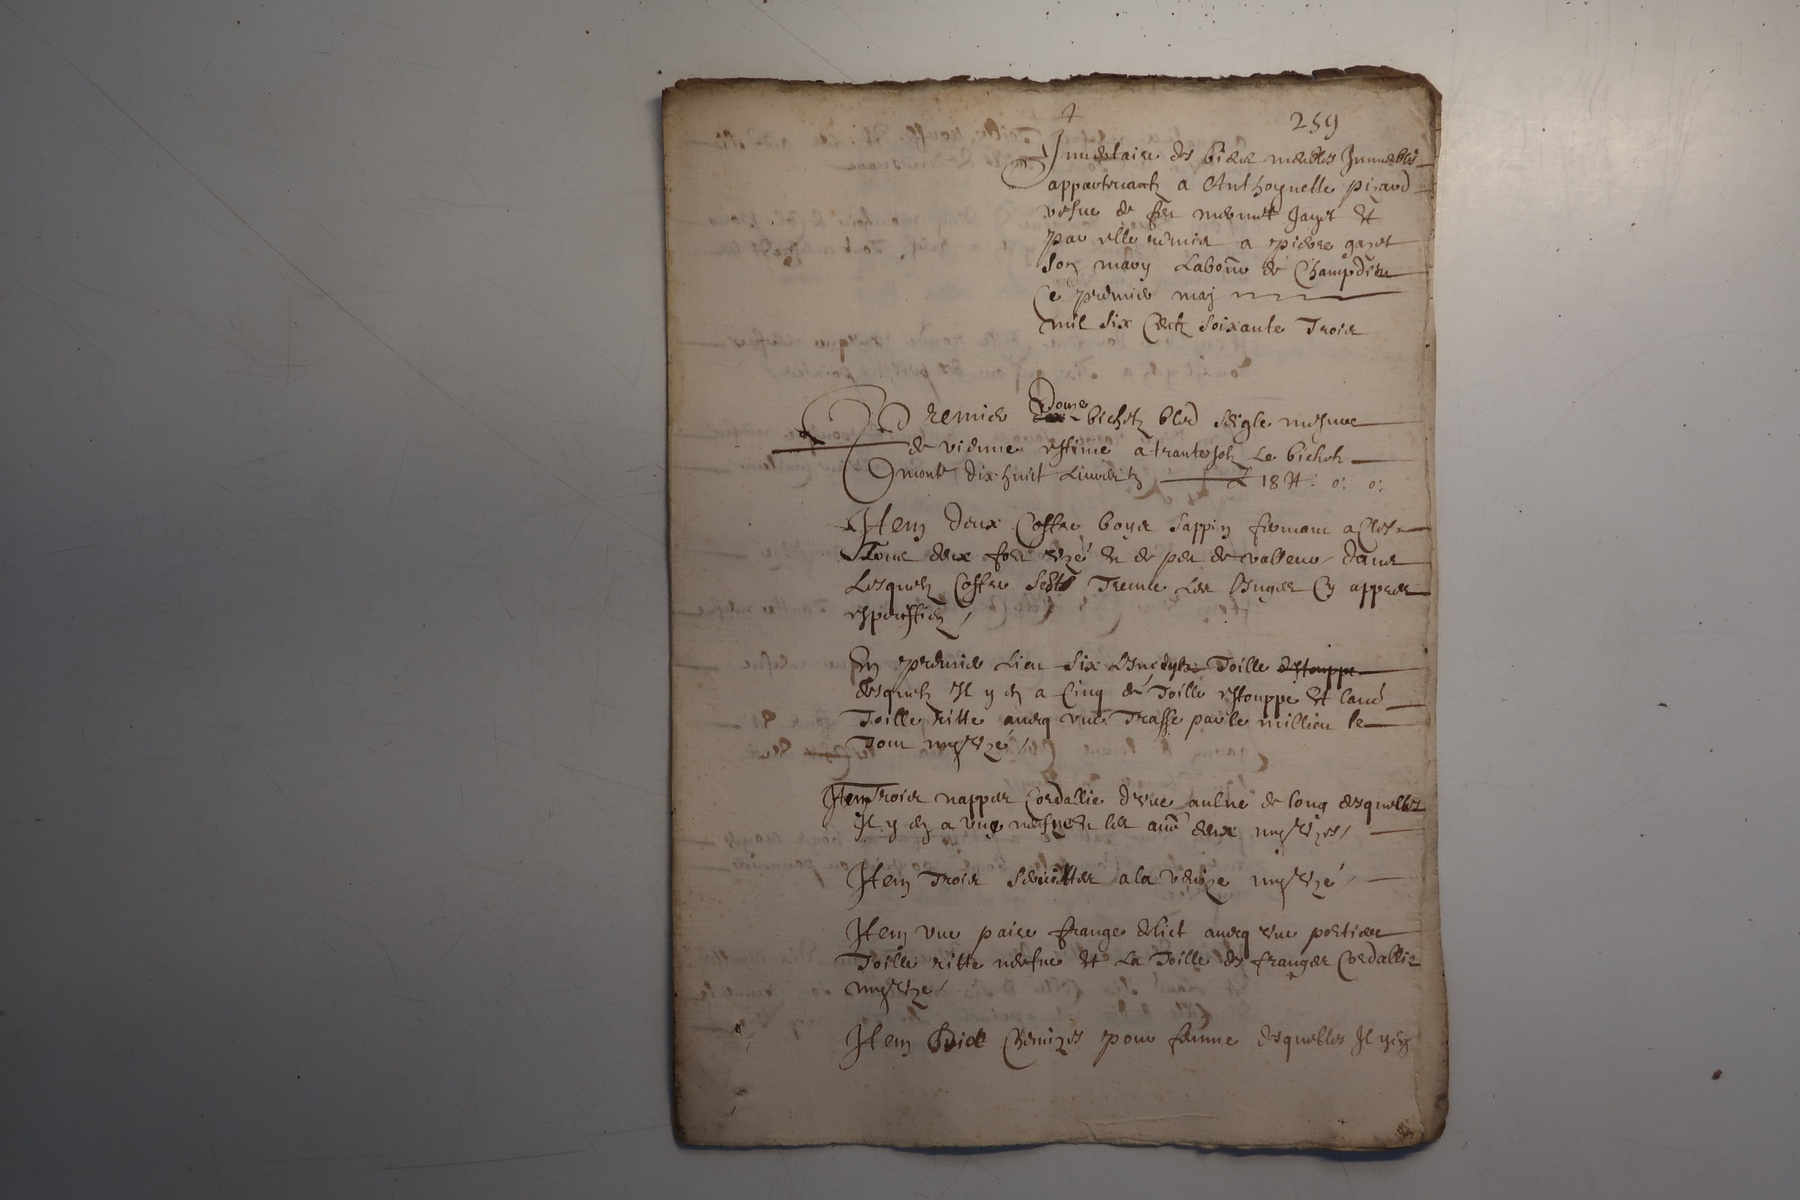 259
Inventaire des biens meubles Immeubles
appartenantz a Anthoynette pizard
vefve de feu mermet Jayet Et
par elle remis a pierre gayet
son mary Labour de Champdieu
Ce premier maj
mil six centz soixante Trois
Premier douze bichetz bled seigle mesure
de vienne estimé a trante solz Le bichet
monte dix huit Livres tz 18 tt. o: o:
Item deux Coffre boys sappin fermant a Clef
Tous deux fort uzé et de peu de valleur dans
Lesquelz Coffre Trouve Les Linges Cy appres
especiffiez
En premier Lieu six Toille destouppe
desquelz Il y en a Cinq de Toille estouppe Et lautre
Toille ritte avecq une Trasse par le millieu le
Tout my uzé
Item Trois nappes Cordallie dune aulne de long desquelles
Il y en a une neufve et les deux my uzes
Item Trois servittes a la venize my uzé
Item une paire frange delict avecq une
Toille ritte neufve Et La Toille des franges Cordallie
my uze
Item Chemizes pour femme desquelles Il y en